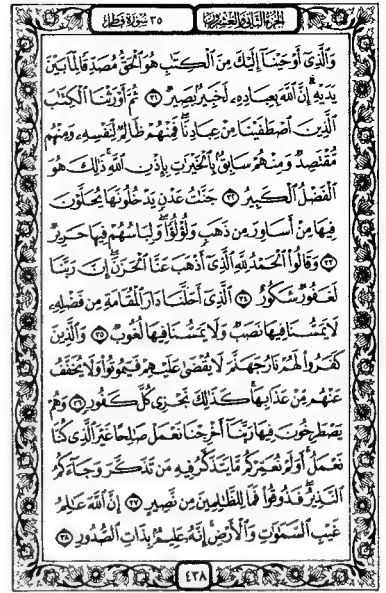 الجزء الثاني والعشرون
٣٥ سورة فاطر
وَالَّذِىٓ أَوْحَيْنَآ إِلَيْكَ مِنَ الْكِتَٰبِ هُوَ الْحَقُّ مُصَدِّقًا لِّمَا بَيْنَ
يَدَيْهِ إِنَّ اللَّهَ بِعِبَادِهِۦ لَخَبِيرٌۢ بَصِيرٌ ٣١ ثُمَّ أَوْرَثْنَا الْكِتَٰبَ
الَّذِينَ اصْطَفَيْنَا مِنْ عِبَادِنَا فَمِنْهُمْ ظَالِمٌ لِّنَفْسِهِۦ وَمِنْهُم
مُّقْتَصِدٌ وَمِنْهُمْ سَابِقٌۢ بِالْخَيْرَٰتِ بِإِذْنِ اللَّهِ ذَٰلِكَ هُوَ
الْفَضْلُ الْكَبِيرُ ٣٢ جَنَّٰتُ عَدْنٍ يَدْخُلُونَهَا يُحَلَّوْنَ
فِيهَا مِنْ أَسَاوِرَ مِن ذَهَبٍ وَلُؤْلُؤًا وَلِبَاسُهُمْ فِيهَا حَرِيرٌ
٣٣ وَقَالُوا الْحَمْدُ لِلَّهِ الَّذِىٓ أَذْهَبَ عَنَّا الْحَزَنَ إِنَّ رَبَّنَا
لَغَفُورٌ شَكُورٌ ٣٤ الَّذِىٓ أَحَلَّنَا دَارَ الْمُقَامَةِ مِن فَضْلِهِۦ
لَا يَمَسُّنَا فِيهَا نَصَبٌ وَلَا يَمَسُّنَا فِيهَا لُغُوبٌ ٣٥ وَالَّذِينَ
كَفَرُوا لَهُمْ نَارُ جَهَنَّمَ لَا يُقْضَىٰ عَلَيْهِمْ فَيَمُوتُوا وَلَا يُخَفَّفُ
عَنْهُم مِّنْ عَذَابِهَا كَذَٰلِكَ نَجْزِى كُلَّ كَفُورٍ ٣٦ وَهُمْ
يَصْطَرِخُونَ فِيهَا رَبَّنَآ أَخْرِجْنَا نَعْمَلْ صَٰلِحًا غَيْرَ الَّذِى كُنَّا
نَعْمَلُ أَوَلَمْ نُعَمِّرْكُم مَّا يَتَذَكَّرُ فِيهِ مَن تَذَكَّرَ وَجَآءَكُمُ
النَّذِيرُ فَذُوقُوا فَمَا لِلظَّٰلِمِينَ مِن نَّصِيرٍ ٣٧ إِنَّ اللَّهَ عَٰلِمُ
غَيْبِ السَّمَٰوَٰتِ وَالْأَرْضِ إِنَّهُۥ عَلِيمٌۢ بِذَاتِ الصُّدُورِ ٣٨
٤٣٨